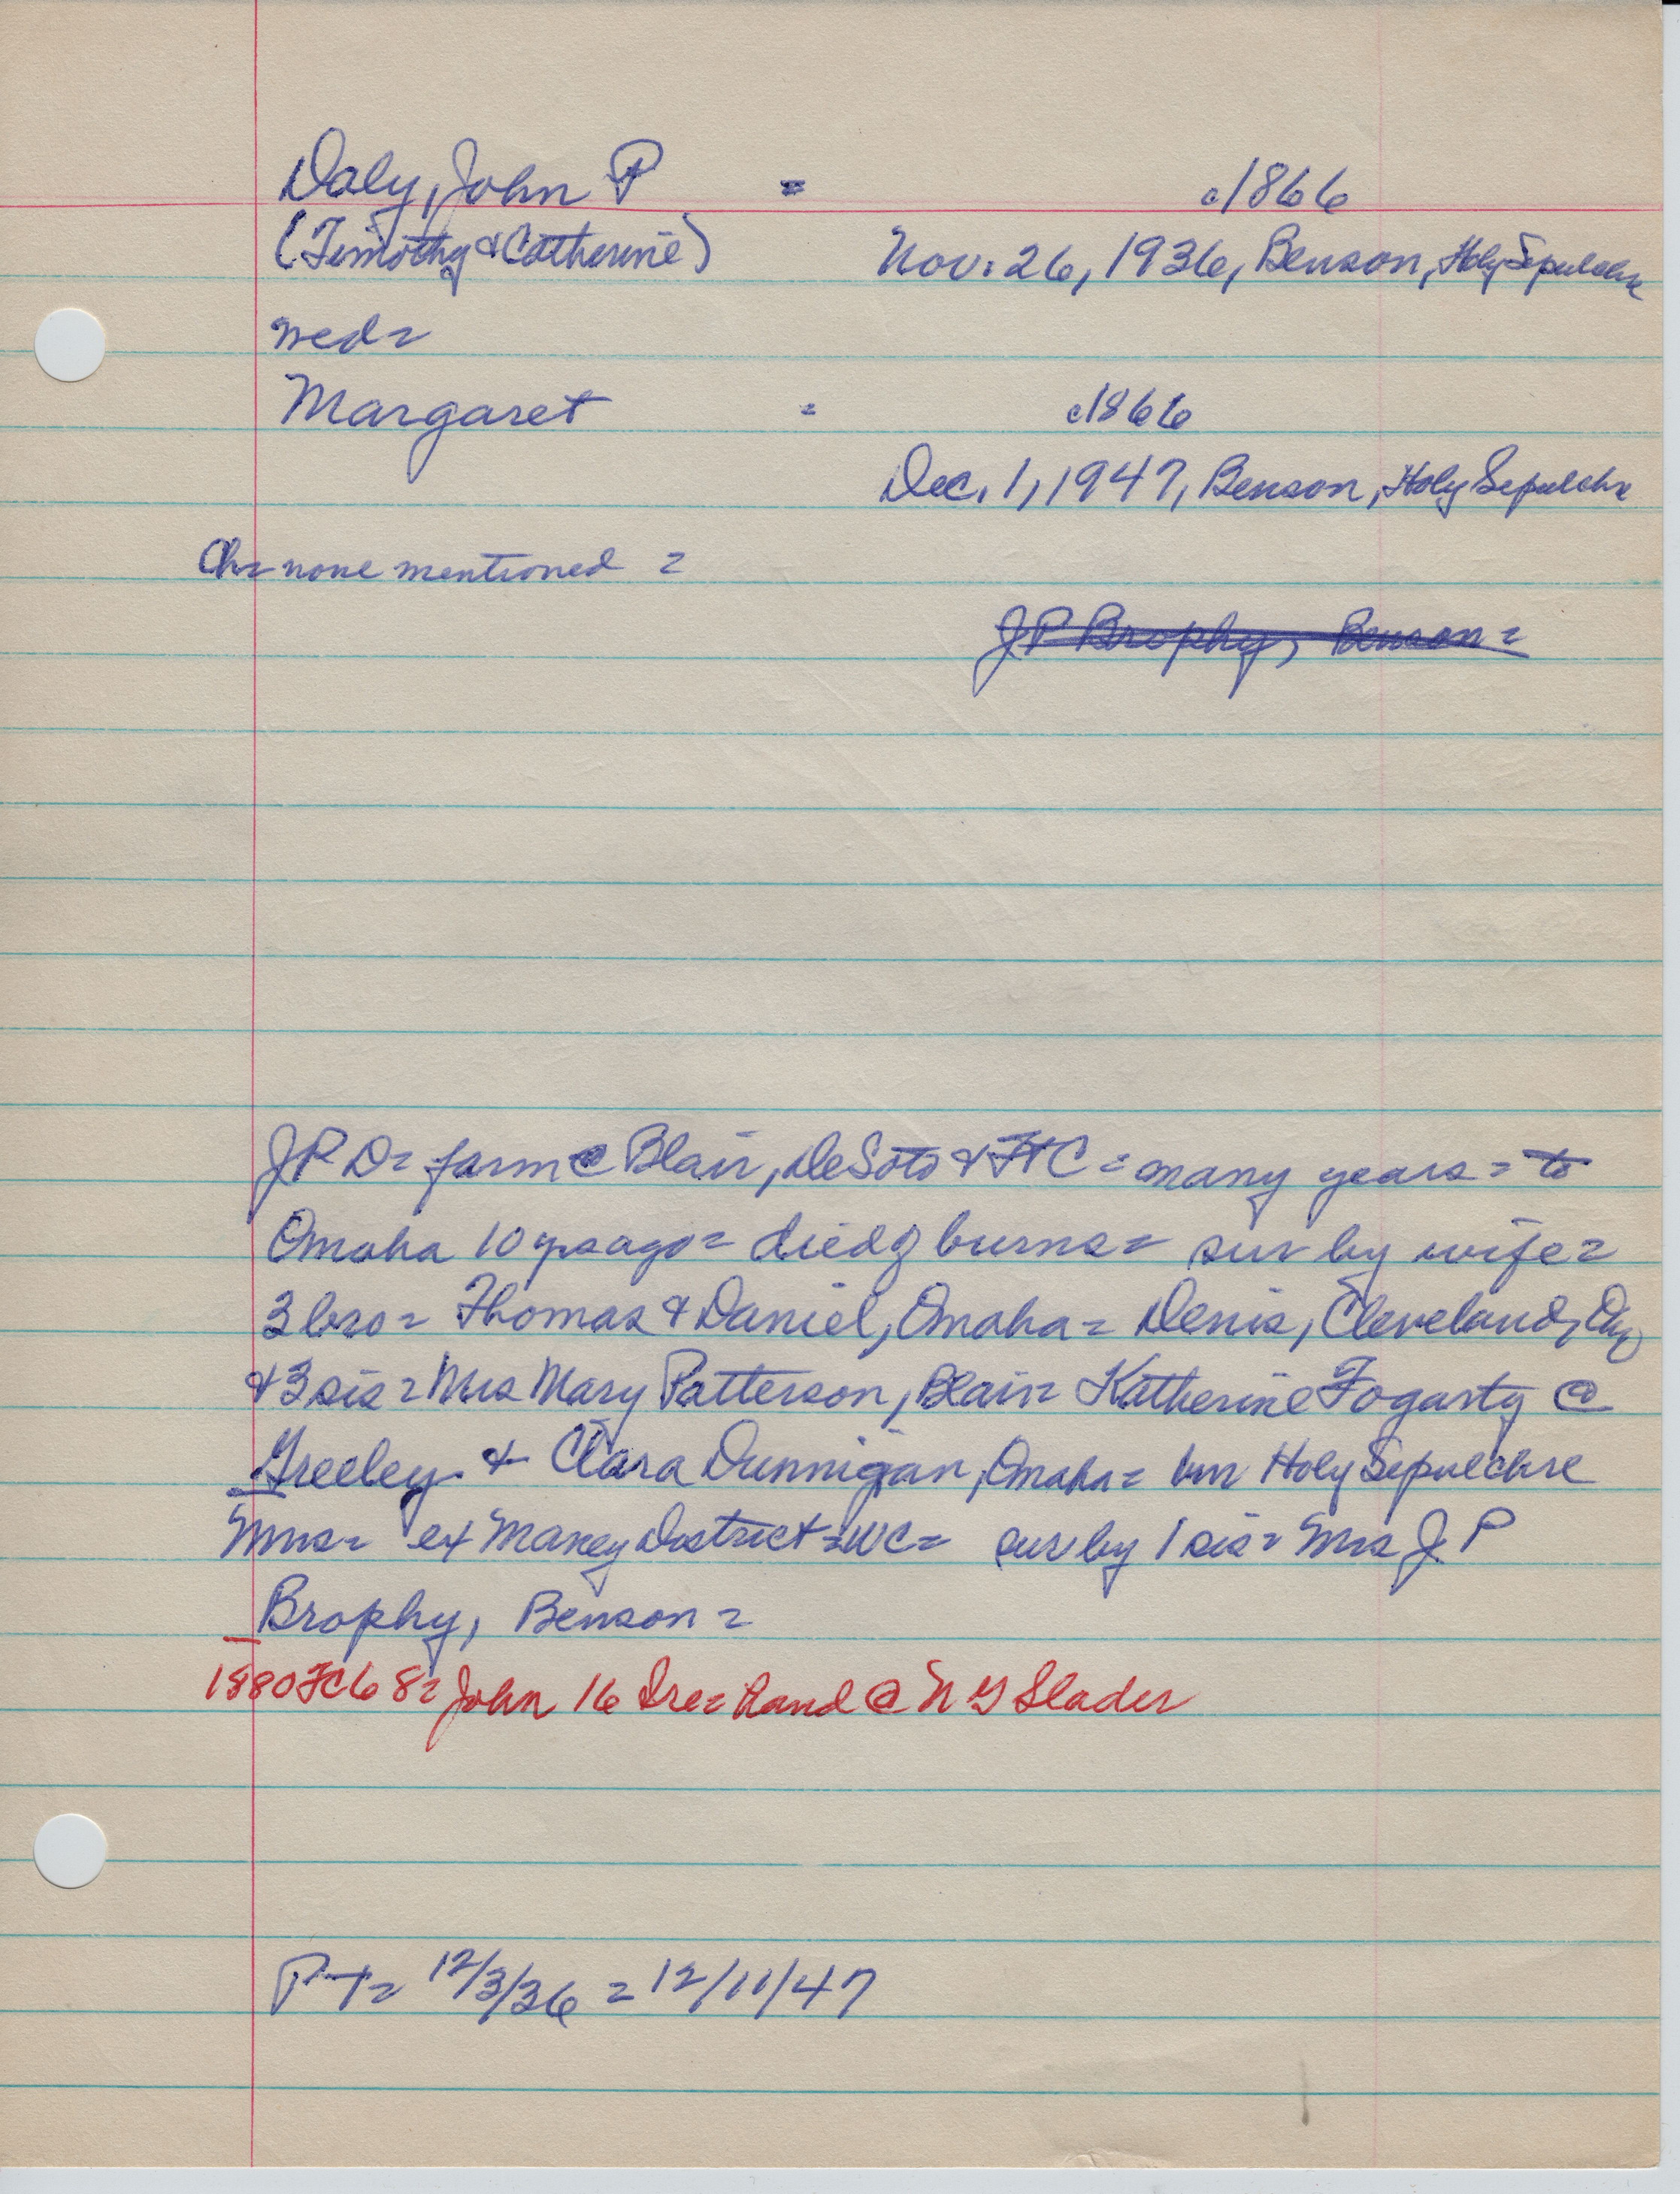 Daly, John P = c1866
(Timothy & Catherine) Nov. 26, 1936, Benson, Holy Sepulchre
wed=
Margaret = c1866
Dec. 1, 1947, Benson, Holy Sepulchre
Ch= none mentioned =
JP Brophy, Benson =
JP D= farm @ Blair, DeSoto & FtC = many years = to
Omaha 10 yrs ago = died of burns = sur by wife =
3 bro = Thomas & Daniel, Omaha = Denis, Cleveland,
& 3 sis = Mrs Mary Patterson, Blair= Katherine Fogarty @
Greeley & Clara Dunnigan, Omaha = bur Holy Sepulchre
Mrs= ex Maney District = WC = sur by 1 sis = Mrs J P
Brophy, Benson =
1880 FC 6 8= John 16 Ire= hand @ N G Slader
PT= 12/3/36 = 12/11/47